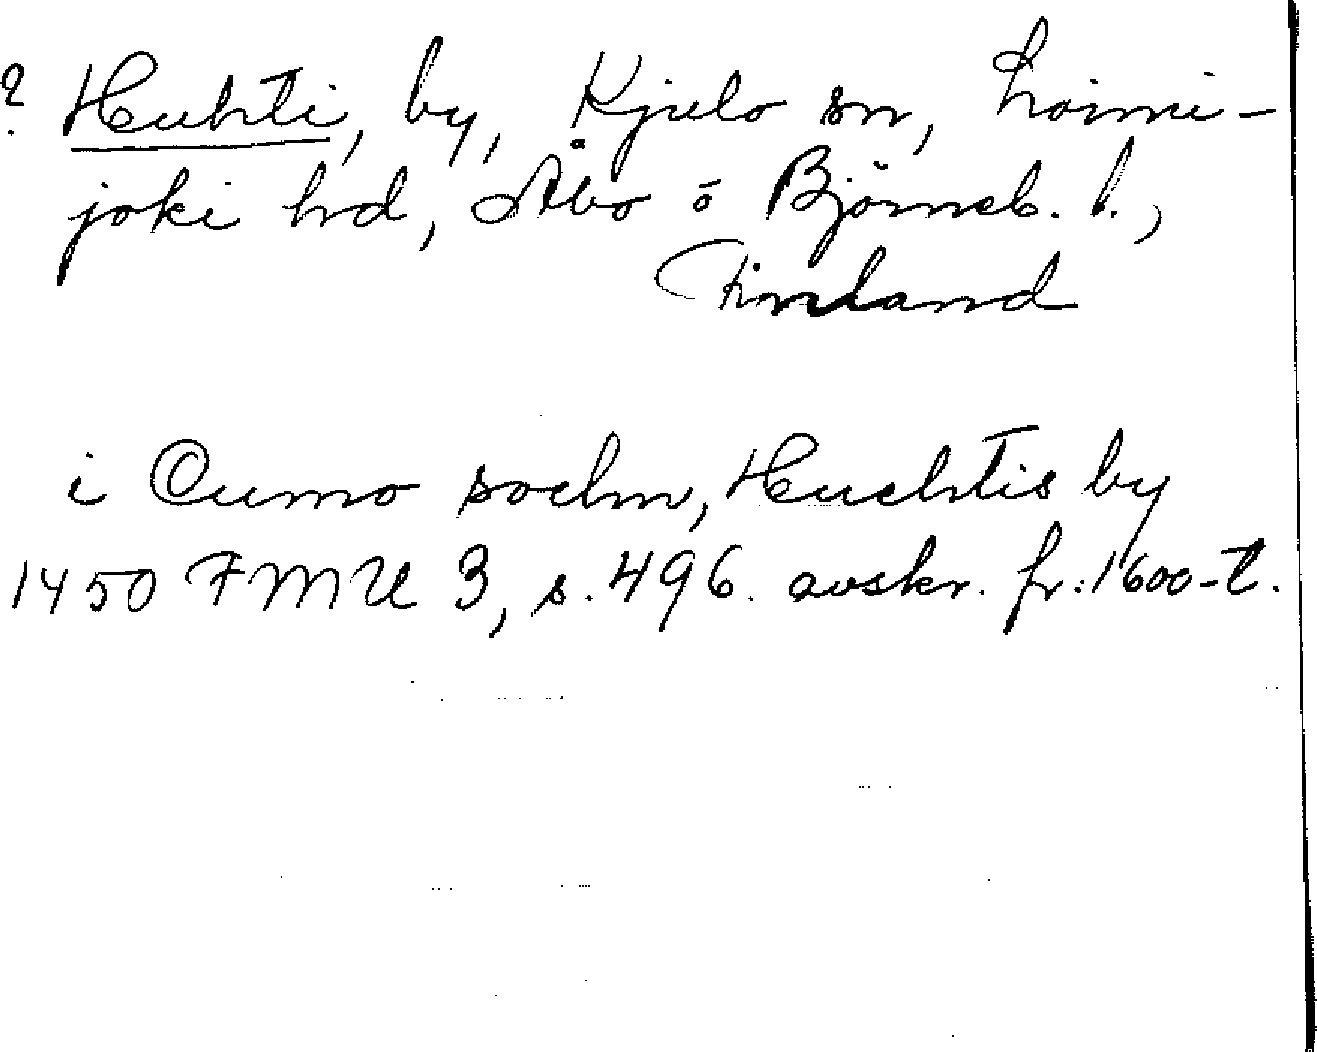 ? Huhti, by, Kjulo sn, Loimi-
joki hd, Åbo o Björneb. l.,
Finland
i Cumo sochn, Huchtis by
1450 FMU 3, s. 496. avskr. fr. 1600-t.